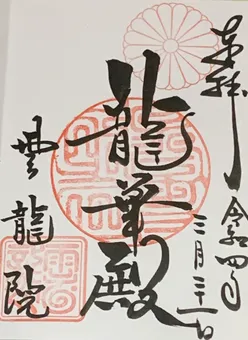 奉拝
令和四年
三月三十一日
龍華殿
雲龍院